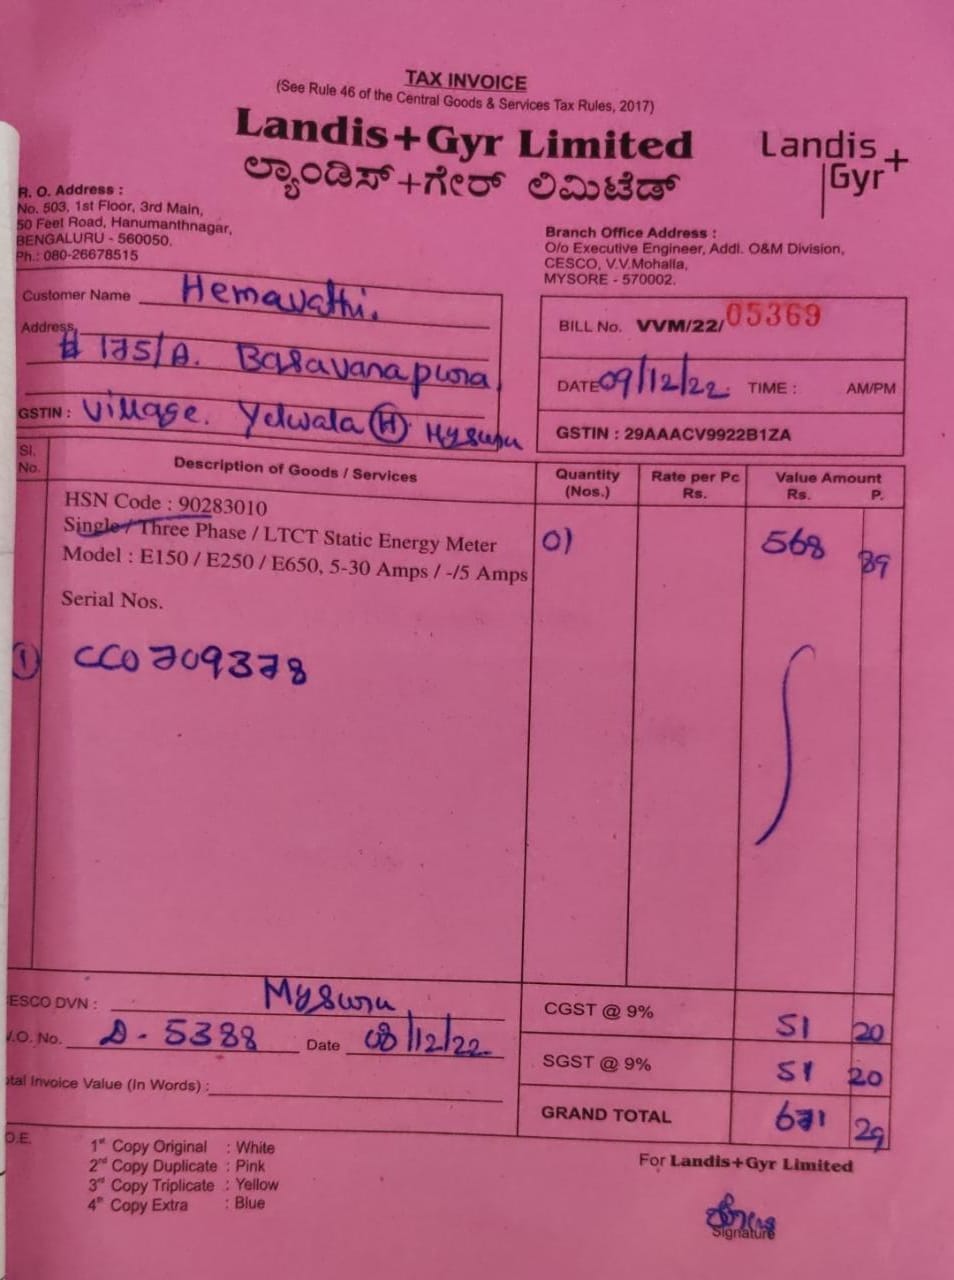 TAX INVOICE
(See Rule 46 of the Central Goods & Services Tax Rules, 2017)
Landis+Gyr Limited
ಲ್ಯಾಂಡಿಸ್+ಗೇರ್ ಲಿಮಿಟೆಡ್
Landis+
Gyr
R. O. Address :
No. 503, 1st Floor, 3rd Main,
50 Feet Road, Hanumanthnagar,
BENGALURU - 560050.
Ph.: 080-26678515
Branch Office Address :
O/o Executive Engineer, Addl. O&M Division,
CESCO, V.V.Mohalla,
MYSORE - 570002.
Customer Name Hemavathi.
Address # 175/A. Basavanapura
GSTIN : Village. Yelwala (H) Mysuru
BILL No. VVM/22/05369
DATE 09/12/22. TIME : AM/PM
GSTIN : 29AAACV9922B1ZA
Sl. No. Description of Goods / Services Quantity (Nos.) Rate per Pc Rs. Value Amount Rs. P.
HSN Code : 90283010
Single / Three Phase / LTCT Static Energy Meter 01 568 89
Model : E150 / E250 / E650, 5-30 Amps / -/5 Amps
Serial Nos.
1 CC0709378
ESCO DVN : Mysuru
.O. No. D - 5388 Date 08/12/22.
tal Invoice Value (In Words) :
CGST @ 9% 51 20
SGST @ 9% 51 20
GRAND TOTAL 671 29
O.E.
1st Copy Original : White
2nd Copy Duplicate : Pink
3rd Copy Triplicate : Yellow
4th Copy Extra : Blue
For Landis+Gyr Limited
Signature